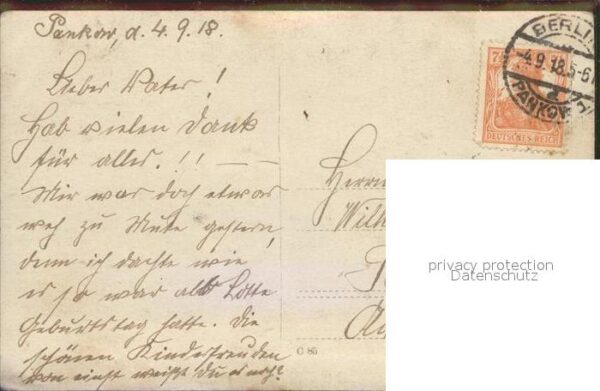 Pankow, d. 4. 9. 18.
Lieber Vater!
Hab vielen Dank
für alles.!! —
Mir war doch etwas
weh zu Mute gestern,
denn ich dachte wie
es so war als Lotte
Geburtstag hatte. Die
schönen Kinderfreuden
von einst weißt Du es noch?
BERLIN
4.9.18.5-6
PANKOW 1
7½
DEUTSCHES REICH
Herrn
Wilh
privacy protection
Datenschutz
C 85